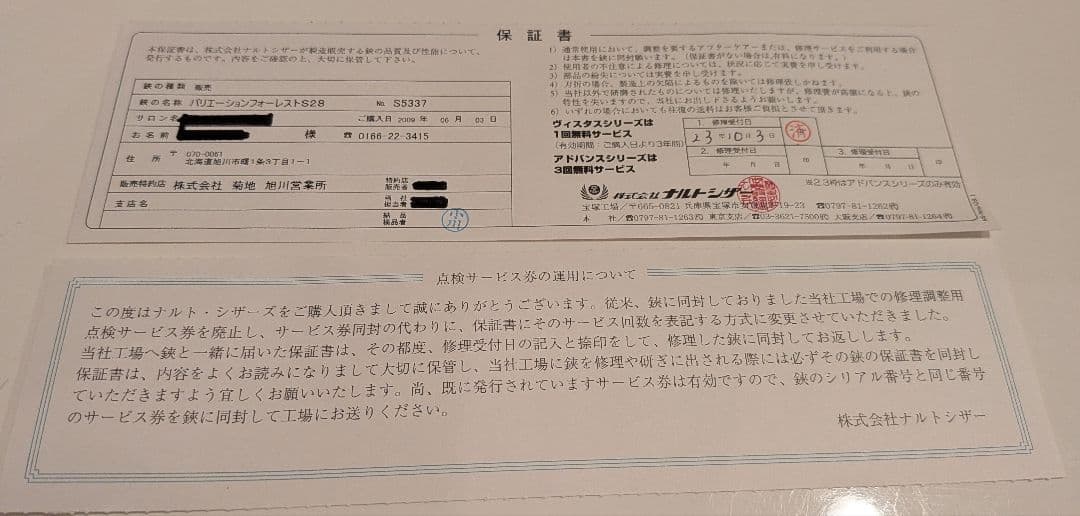 保証書
本保証書は、株式会社ナルトシザーが製造販売する鋏の品質及び性能について、
発行するものです。内容をご確認の上、大切に保管して下さい。
鋏の種類 販売
鋏の名称 バリエーションフォーレストS28 No. S5337
サロン名 ご購入日 2009年 06月 03日
お名前 様 ☎ 0166-22-3415
住所 〒070-0061
北海道旭川市曙1条3丁目1-1
販売特約店 株式会社 菊地 旭川営業所 特約店販売者
支店名 当社担当者
納品検品者 小川
1) 通常使用において、調整を要するアフターケアーまたは、修理サービスをご利用する場合
は本書を鋏に同封願います。(保証書がない場合は有料になります。)
2) 使用者の不注意による修理については、状況に応じて実費を申し受けます。
3) 部品の紛失については実費を申し受けます。
4) 刃折の場合、製造上の欠陥によるものを除いては修理致しかねます。
5) 当社以外で研磨されたものについては修理いたしますが、修理費が高額になると、鋏の
特性を失いますので、当社にお出し下さるようお願いします。
6) いずれの場合においても往復の送料はお客様ご負担とさせて頂きます。
ヴィスタスシリーズは
1回無料サービス
(有効期間:ご購入日より3年間)
アドバンスシリーズは
3回無料サービス
1. 修理受付日
23年10月3日 済
2. 修理受付日
年 月 日 印
3. 修理受付日
年 月 日 印
※2.3枠はアドバンスシリーズのみ有効
株式会社 ナルトシザー
宝塚工場/〒665-0821 兵庫県宝塚市 19-23 ☎0797-81-1262㈹
本社/☎0797-81-1263㈹ 東京支店/☎03-3621-7500㈹ 大阪支店/☎0797-81-1264㈹
点検サービス券の運用について
この度はナルト・シザーズをご購入頂きまして誠にありがとうございます。従来、鋏に同封しておりました当社工場での修理調整用
点検サービス券を廃止し、サービス券同封の代わりに、保証書にそのサービス回数を表記する方式に変更させていただきました。
当社工場へ鋏と一緒に届いた保証書は、その都度、修理受付日の記入と捺印をして、修理した鋏に同封してお返しします。
保証書は、内容をよくお読みになりまして大切に保管し、当社工場に鋏を修理や研ぎに出される際には必ずその鋏の保証書を同封し
ていただきますよう宜しくお願いいたします。尚、既に発行されていますサービス券は有効ですので、鋏のシリアル番号と同じ番号
のサービス券を鋏に同封して工場にお送りください。
株式会社ナルトシザー